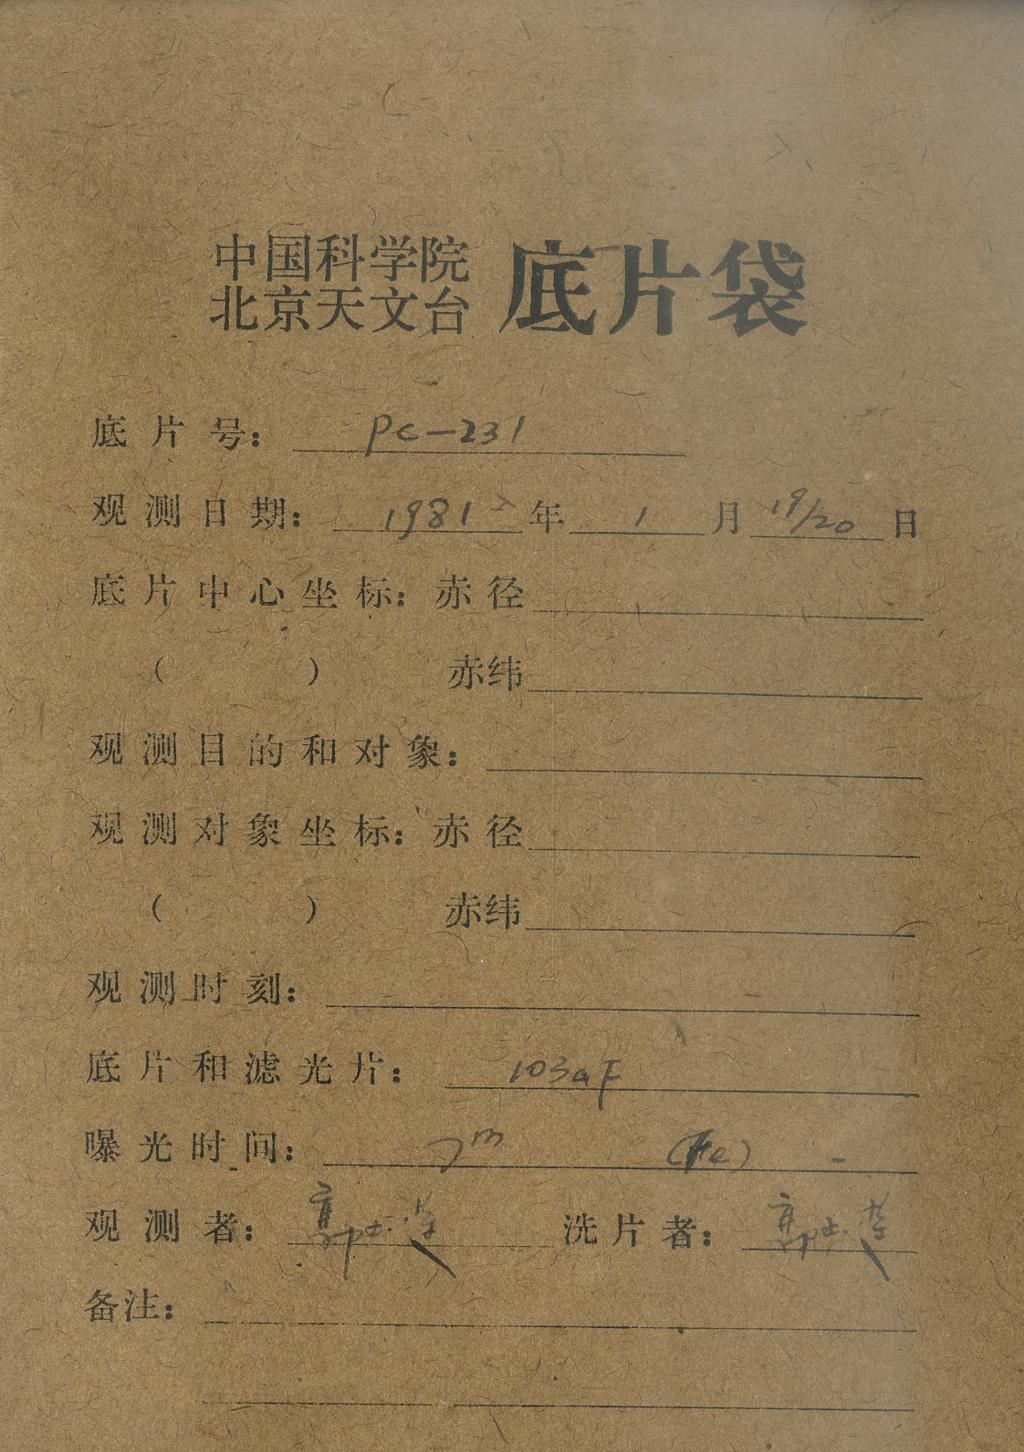 中国科学院
北京天文台 底片袋
底片号: PC-231
观测日期: 1981年 1月 19/20日
底片中心坐标: 赤径
( ) 赤纬
观测目的和对象:
观测对象坐标: 赤径
( ) 赤纬
观测时刻:
底片和滤光片: 103aF
曝光时间: 7m (Fe)
观测者: 洗片者:
备注: